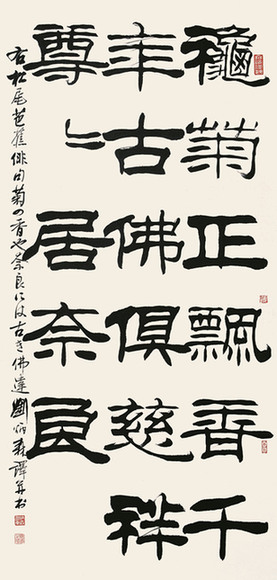 龝菊正飄香千
年古佛俱慈祥
尊〻居奈良
右松尾芭蕉俳句菊の香や奈良には古き佛達劉炳森譯并书